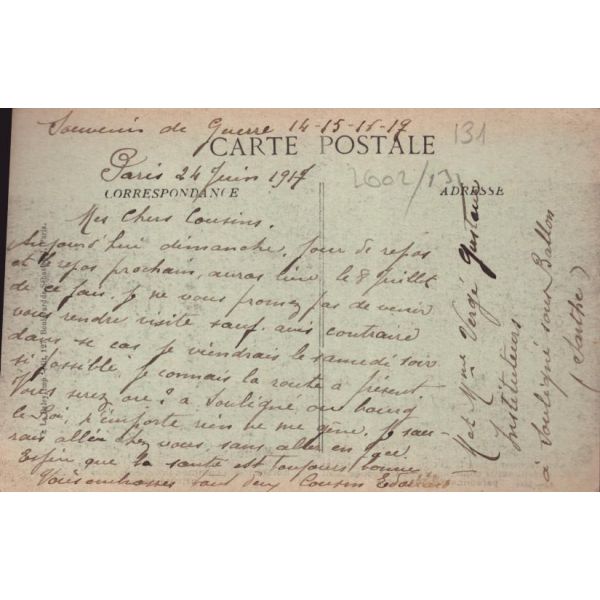 Souvenir de Guerre 14-15-16-17
CARTE POSTALE
131
2602/131
Paris 24 Juin 1917
CORRESPONDANCE
ADRESSE
Mes Chers Cousins.
Aujourd'hui dimanche, jour de repos
et le repos prochain, auras lieu le 8 Juillet
de ce fais. je ne vous promez pas de venir
vous rendre visite sauf avis contraire
dans se cas je viendrais le samedi soir
si possible, je connais la route à présent
Vous serez ou? à Souligné ou bourg
le Roi, n'importe, rien ne me gêne, je sau-
rais aller chez vous, sans aller en gare
Espère que la santé est toujours bonne
Vous embrasses tout deux Cousin Edouard
M et Mme Vergé Gustave
Instituteurs
à Souligné sous Ballon
(Sarthe)